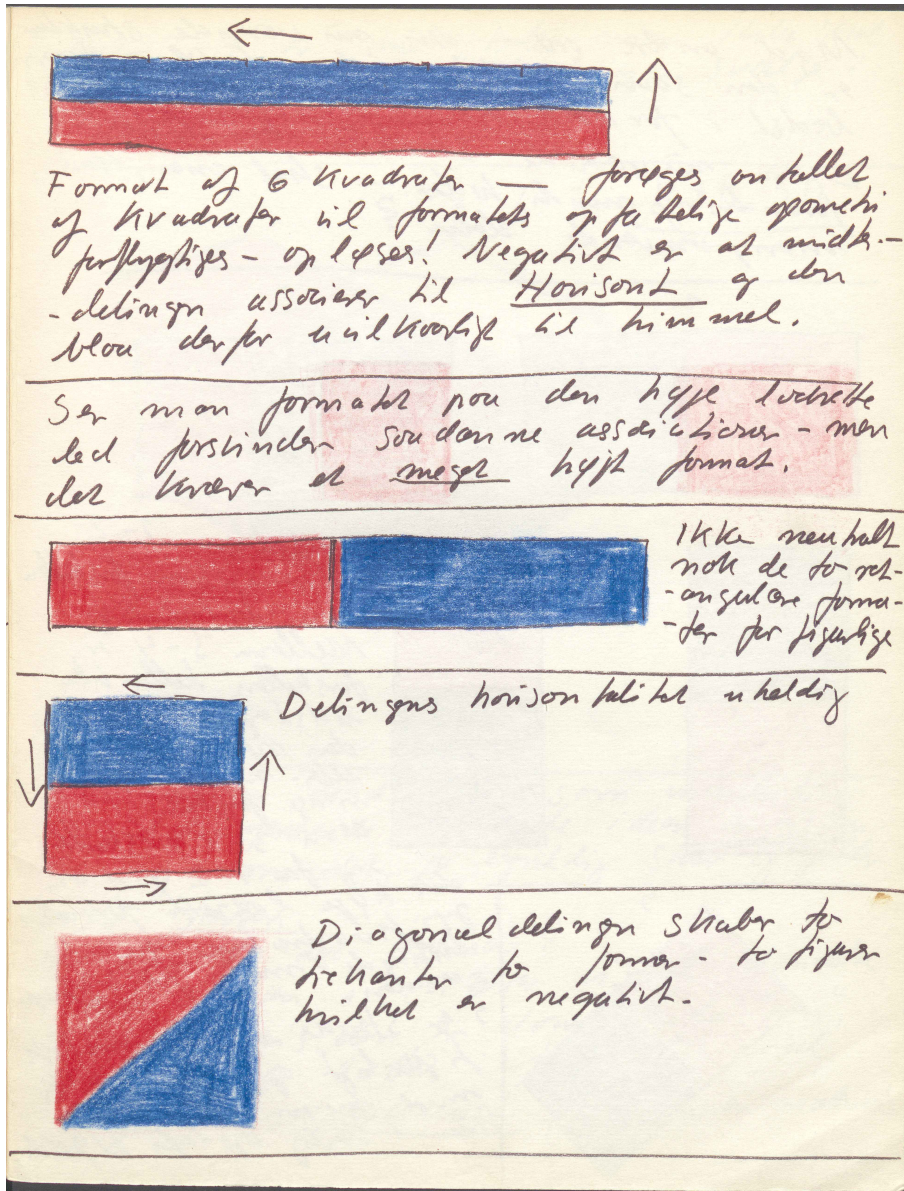 Format af 6 Kvadrater — forøges antallet
af Kvadrater vil formatets opfattelige geometri
forflygtiges - opløses! Negativt er at midter-
-delingen associerer til Horisont og den
blaa derfor uvilkaarligt til himmel.
Ser man formatet paa den høje lodrette
led forsvinder saadanne associationer - men
det kræver et meget højt format.
Ikke neutralt
nok de to rekt-
-angulære forma-
-ter for figurlige
Delingens horisontalitet uheldig
Diagonal delingen skaber to
trekanter to former - to figurer
hvilket er negativt.